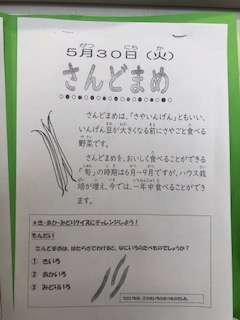 5月30日（火）
さんどまめ
さんどまめは、「さやいんげん」ともいい、
いんげん豆が大きくなる前にさやごと食べる
野菜です。
さんどまめを、おいしく食べることができる
「旬」の時期は6月～9月ですが、ハウス栽
培が増え、今では、一年中食べることができ
ます。
★き・あか・みどりクイズにチャレンジしよう！
もんだい
さんどまめは、はたらきでわけると、なにいろのたべものでしょうか？
① きいろ
② あかいろ
③ みどりいろ